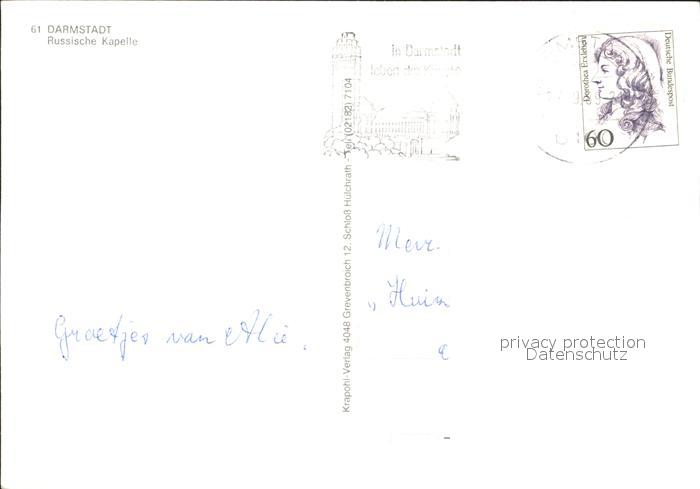 61 DARMSTADT
Russische Kapelle
in Darmstadt
leben die Künste
Dorothea Erxleben
Deutsche Bundespost
60
Krapohl-Verlag 4048 Grevenbroich 12, Schloß Hülchrath - Tel. (02182) 7104
Mevr.
„ Huize
Groetjes van Alie.
privacy protection
Datenschutz